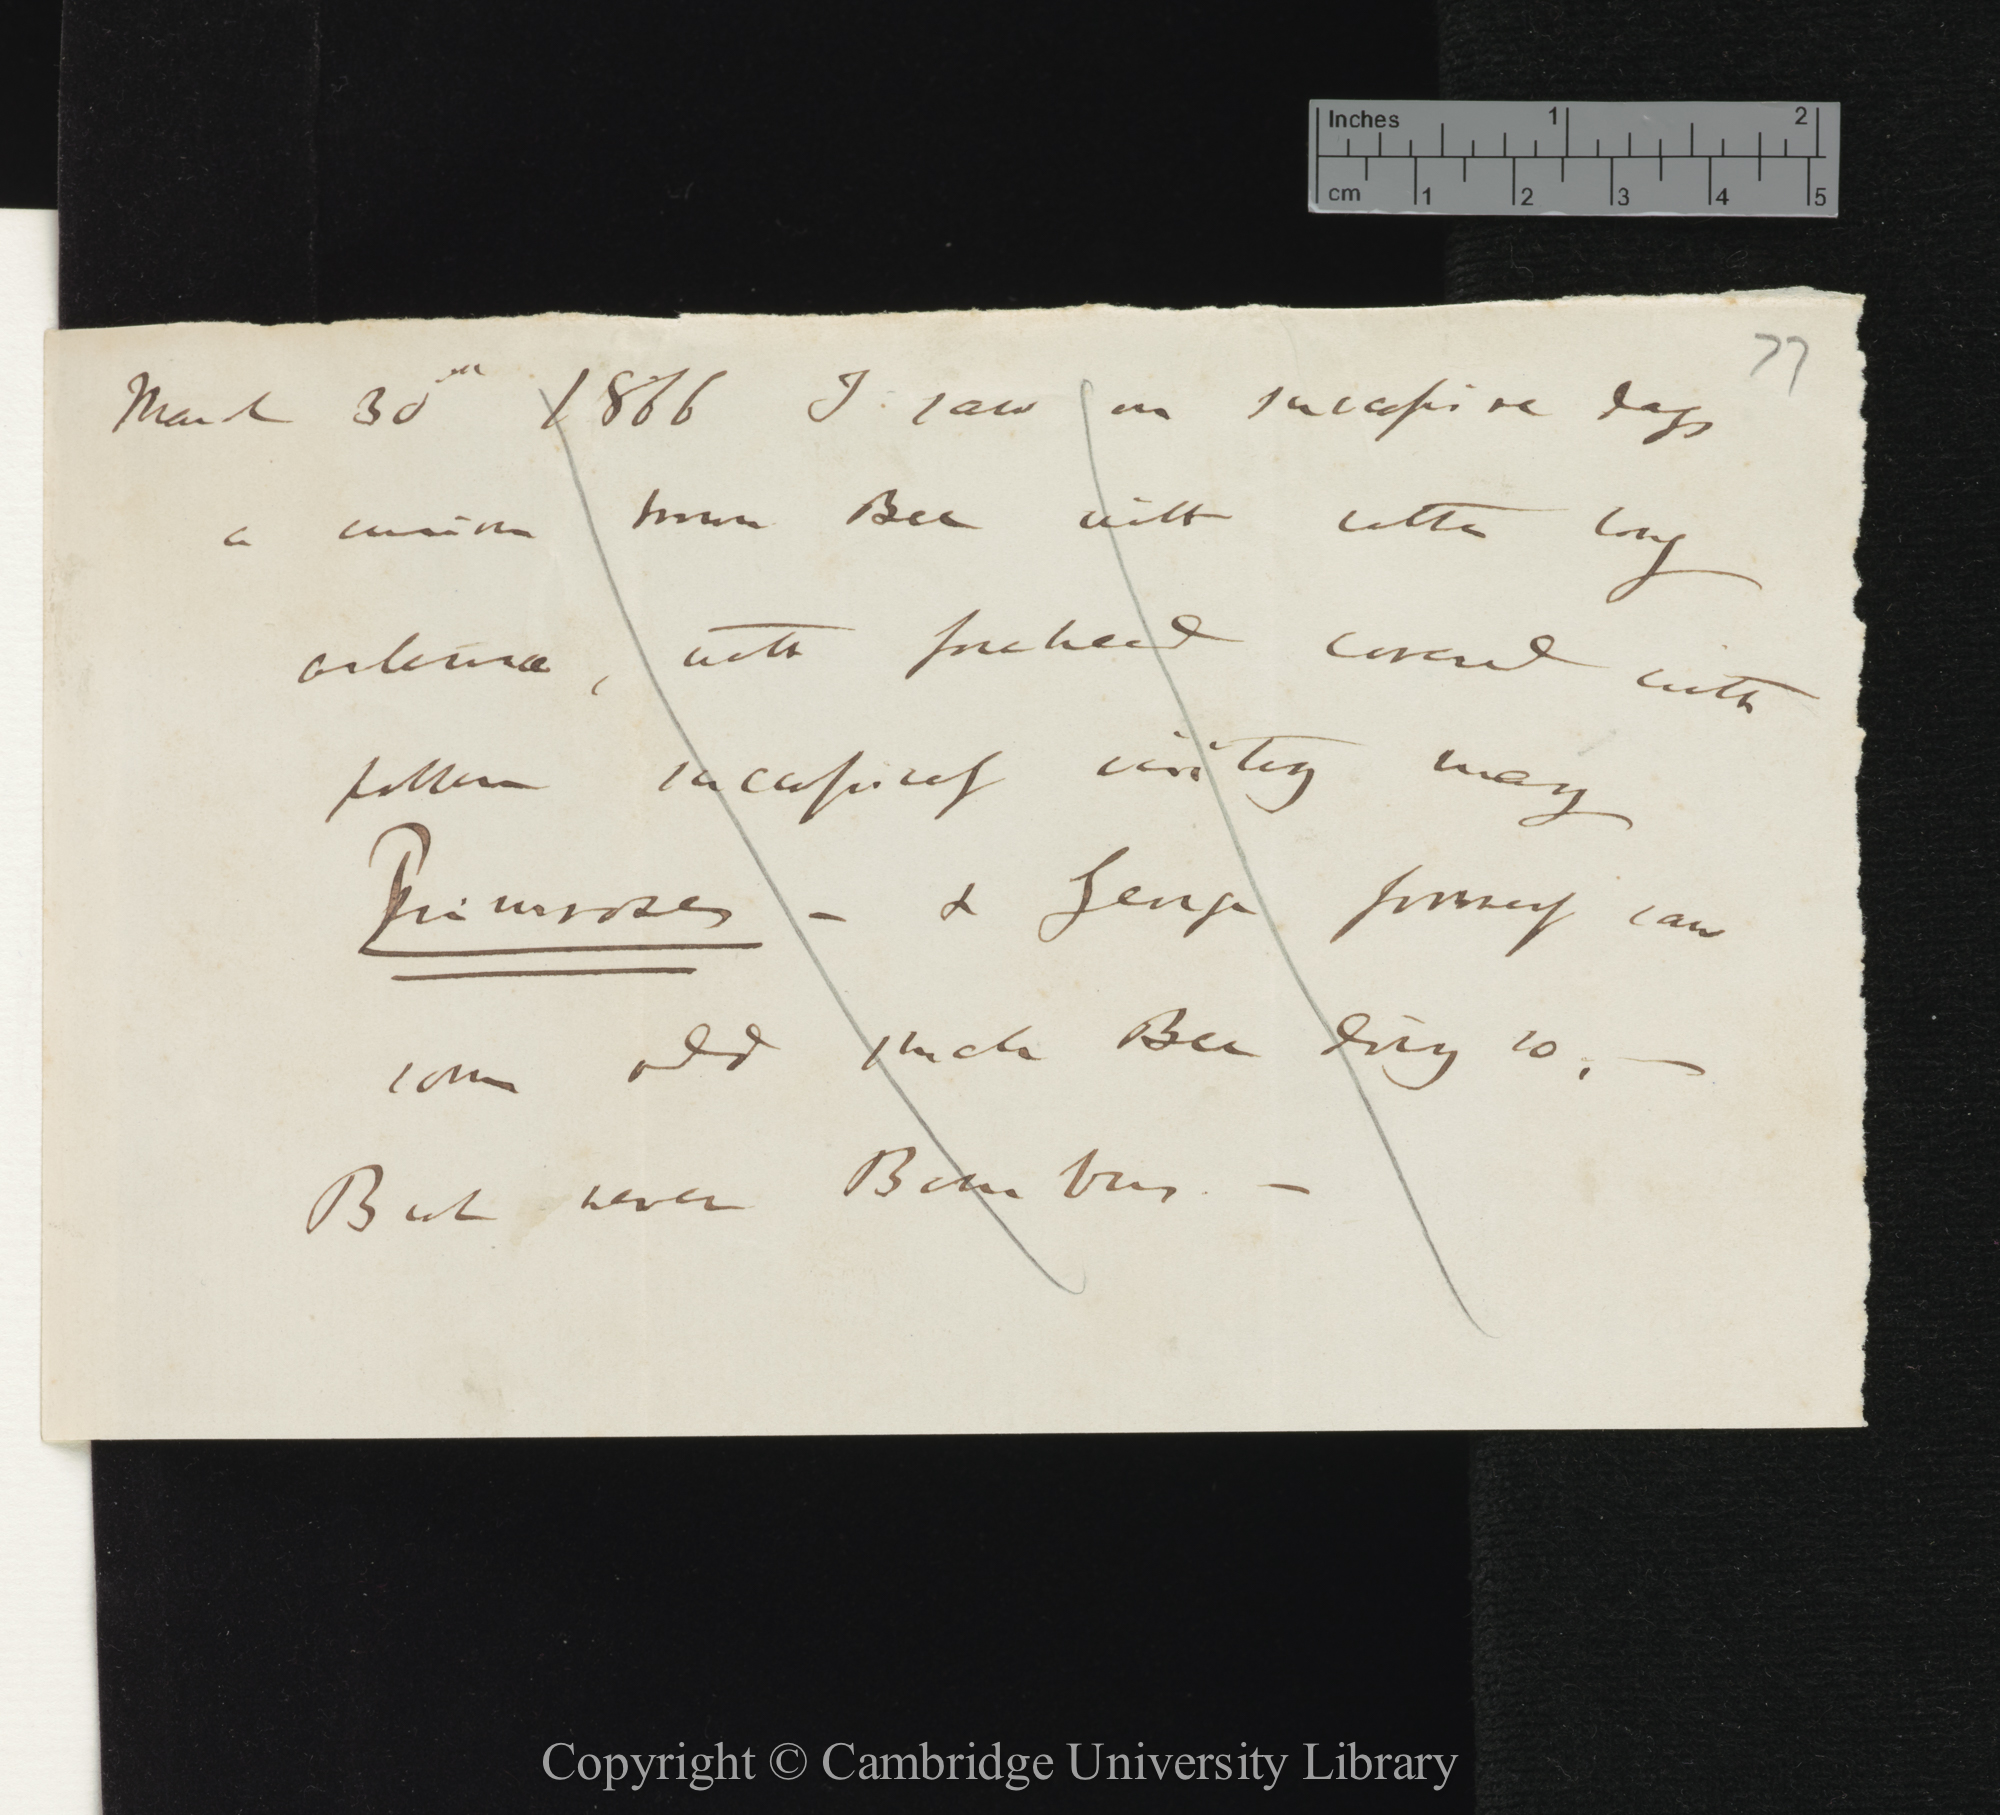 Inches 1 2
cm 1 2 3 4 5
77
March 30th 1866 I saw on successive days
a curious brown Bee with rather long
antennæ, with forehead covered with
pollen successively visiting many
Primroses — & George formerly saw
some odd such Bee doing so. —
But never Bombus. —
Copyright © Cambridge University Library